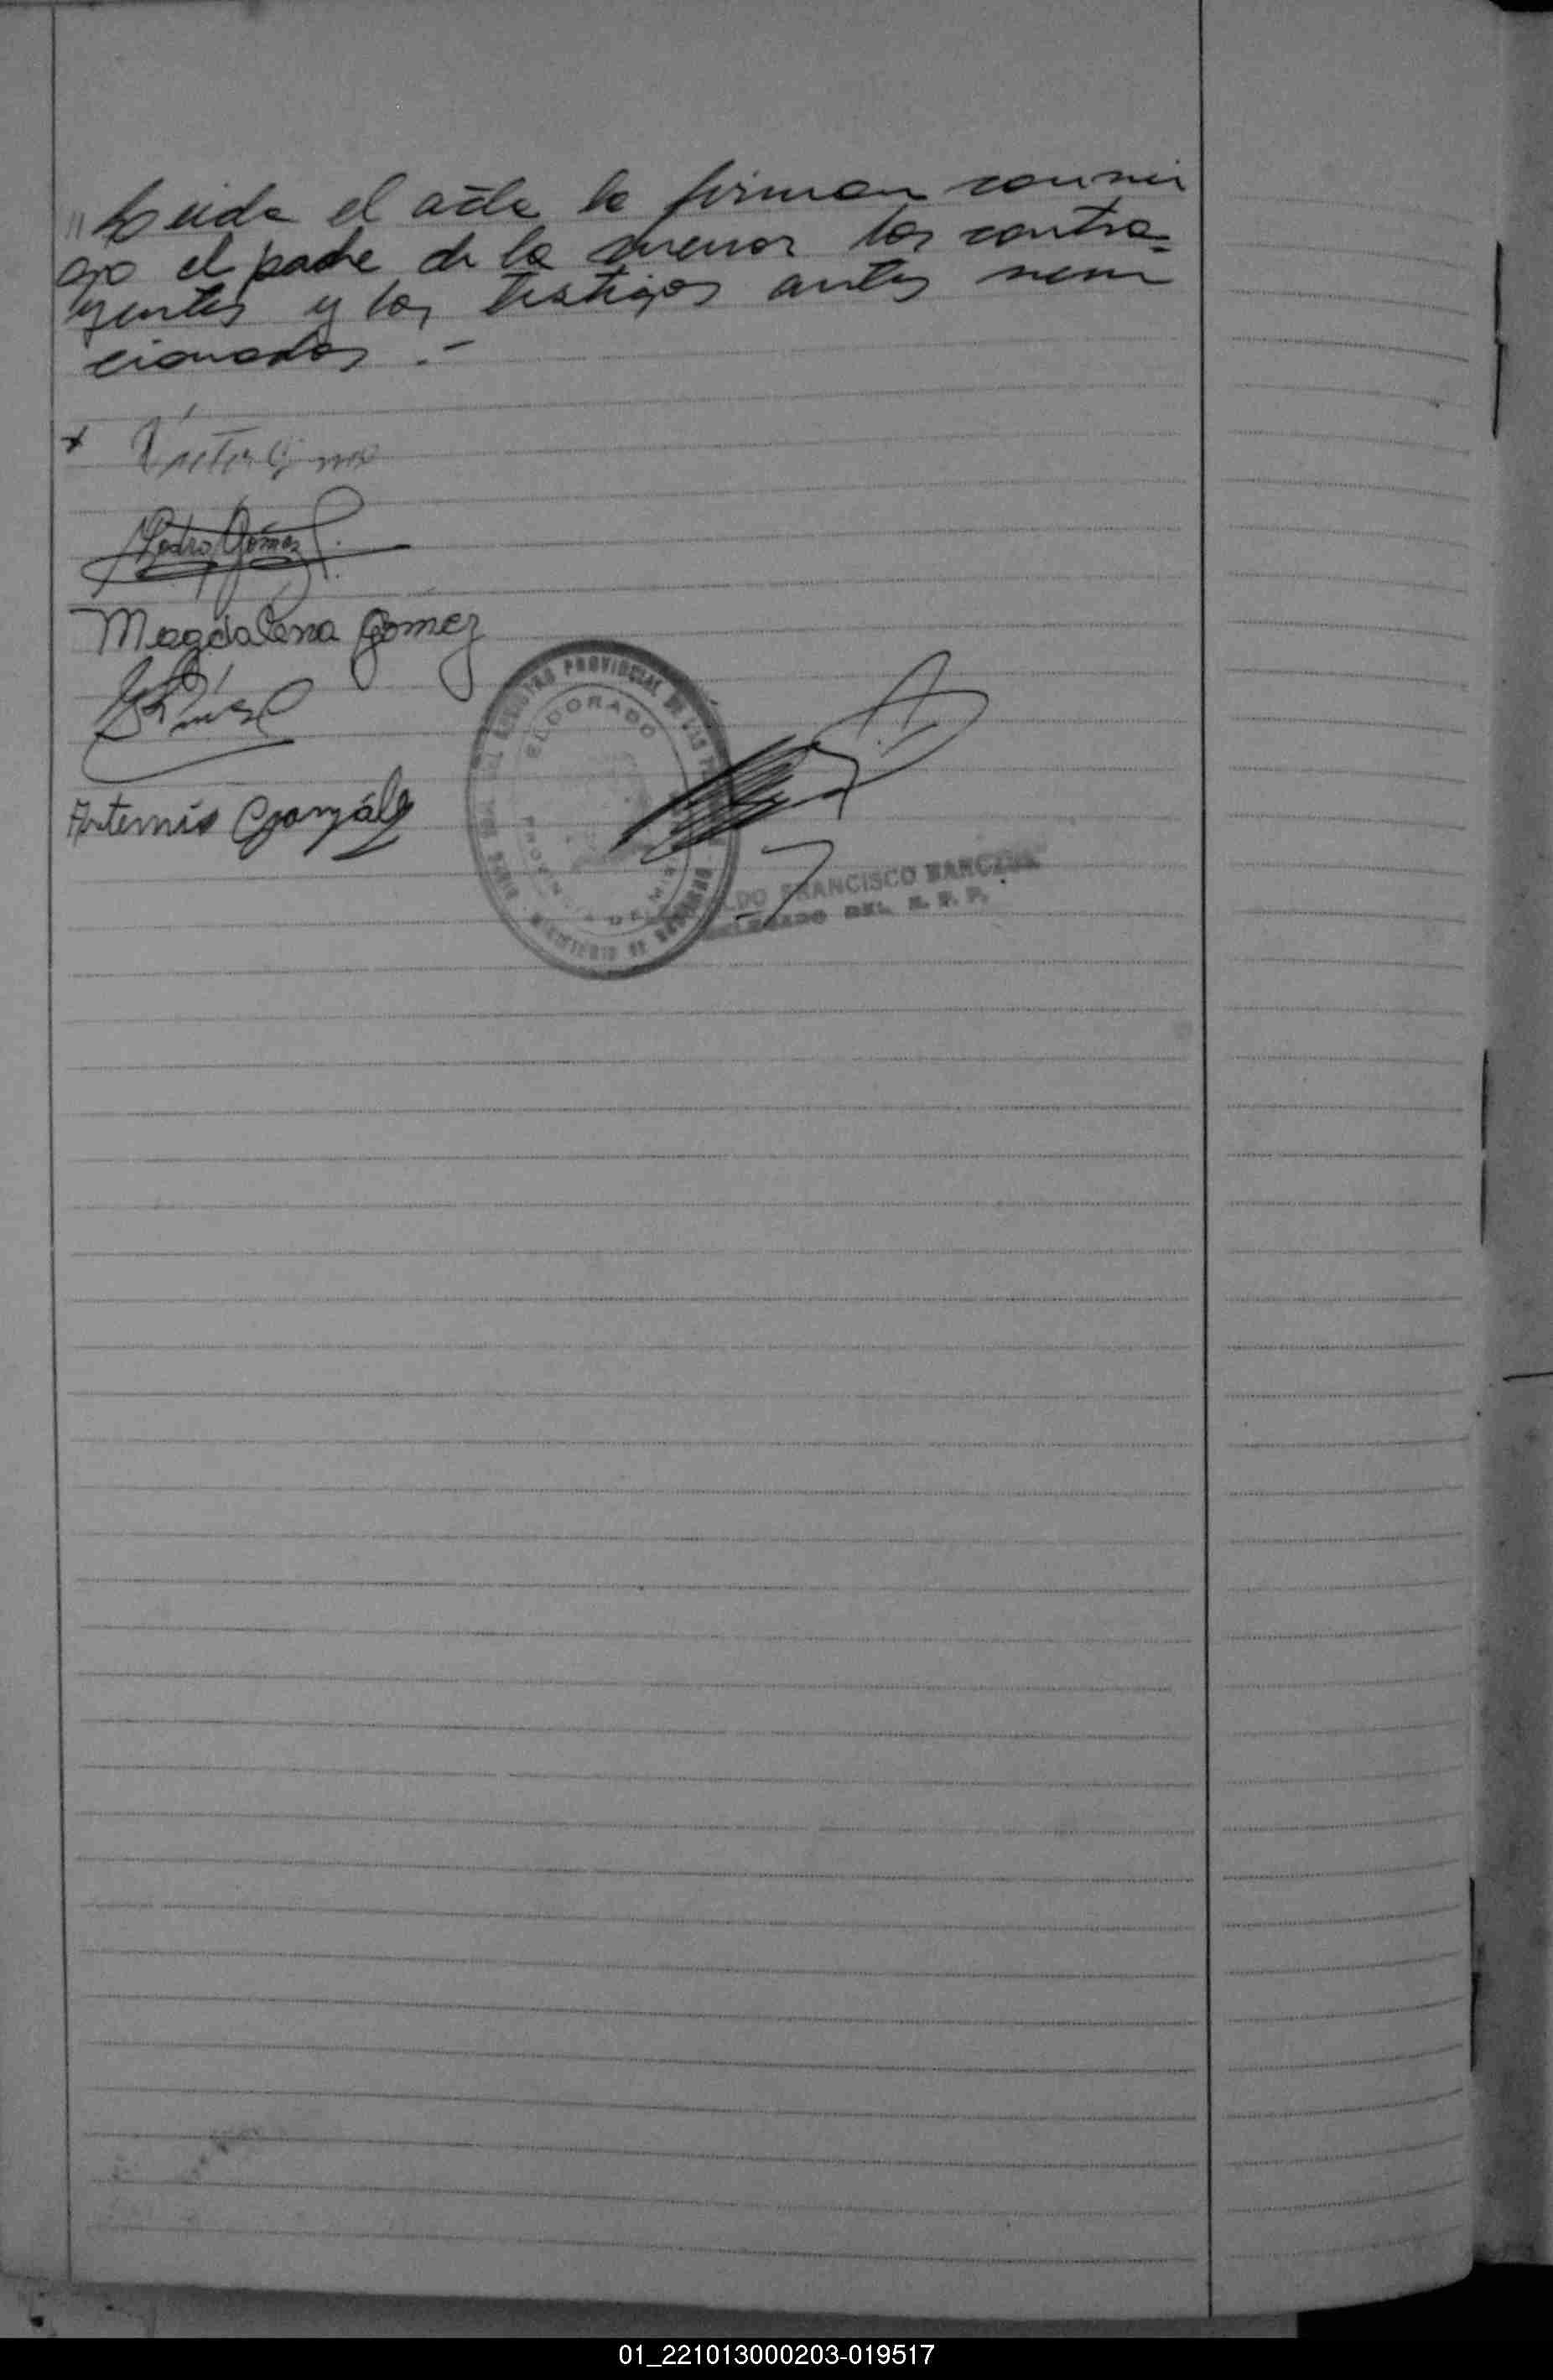 "Leida el acta la firman conmi
go el padre de la menor los contra=
yentes y los testigos antes men
cionados .-
x Victor Gomez
Pedro Gómez
Magdalena Gómez
Artemis González
REGISTRO PROVINCIAL DE LAS
ELDORADO
PROVINCIA DE MIS
MINISTERIO DE GOBIERNO
LDO FRANCISCO
DELEGADO DEL R. P. P.
01_221013000203-019517